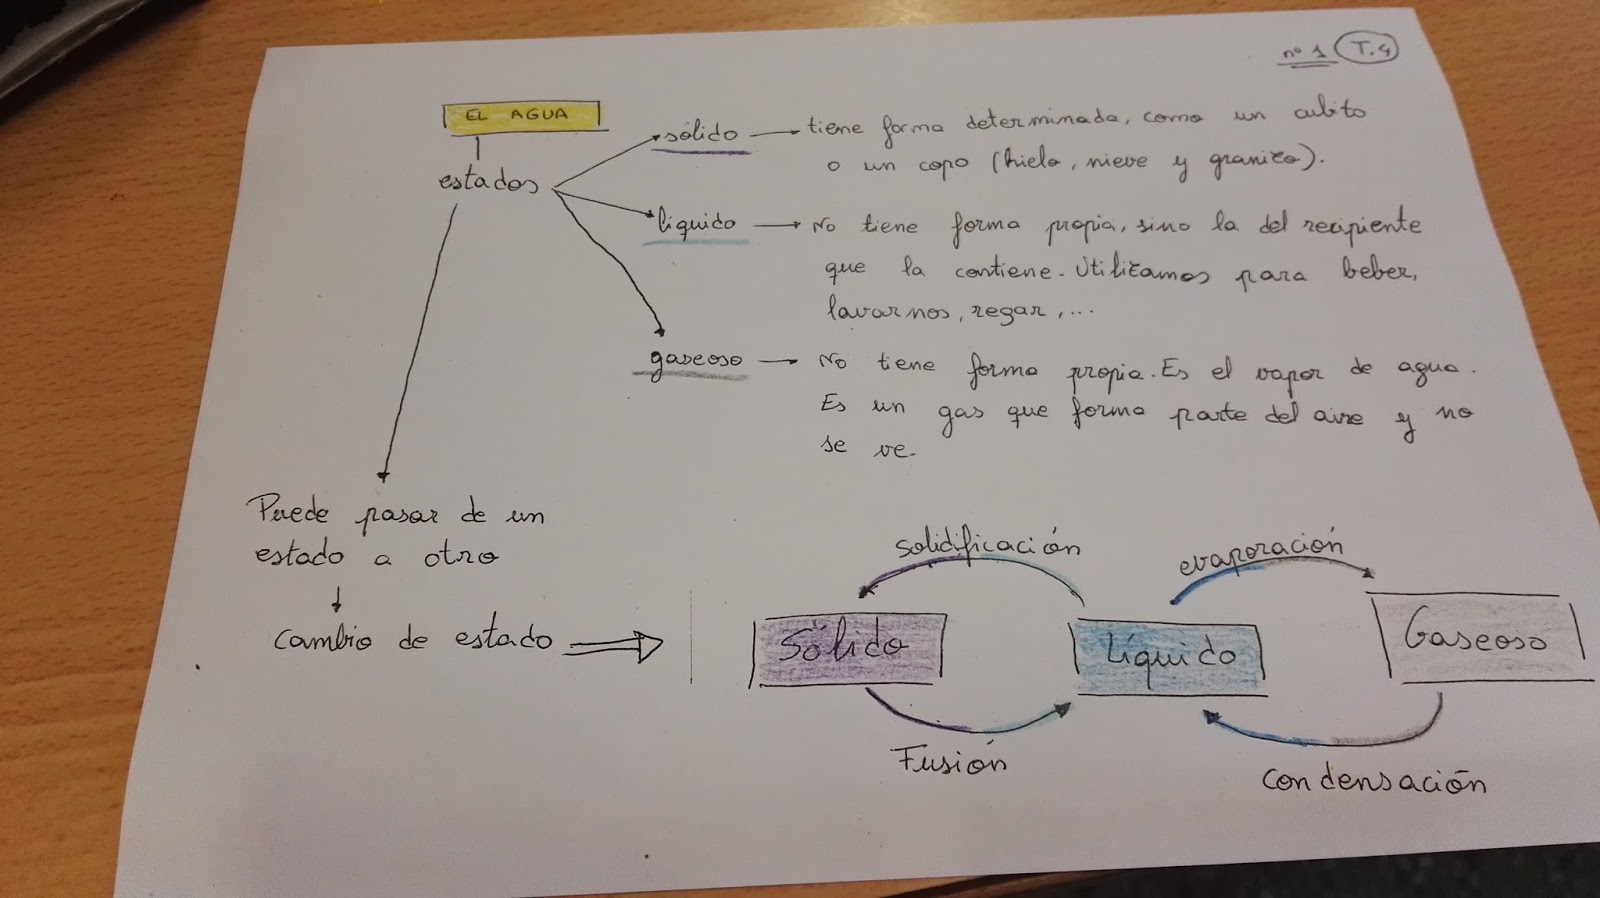 nº 1 T.4
EL AGUA
estados
sólido
tiene forma determinada, como un cubito
o un copo (hielo, nieve y granizo).
líquido
No tiene forma propia, sino la del recipiente
que la contiene. Utilizamos para beber,
lavarnos, regar,...
gaseoso
No tiene forma propia. Es el vapor de agua.
Es un gas que forma parte del aire y no
se ve.
Puede pasar de un
estado a otro
Cambio de estado
solidificación
evaporación
Sólido
Líquido
Gaseoso
Fusión
Condensación